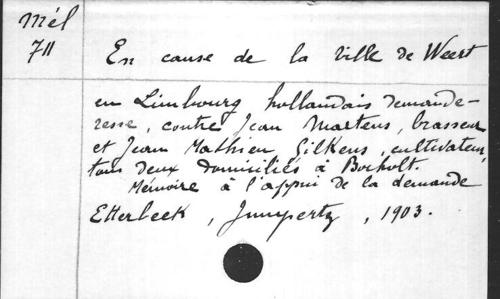 Mél
711
En cause de la ville de Weert
en Limbourg hollandais demande-
resse, contre Jean Martens, brasseur
et Jean Mathieu Gilkens, cultivateur,
tous deux domiciliés à Bocholt.
Mémoire à l'appui de la demande
Etterbeek, Jumpertz, 1903.